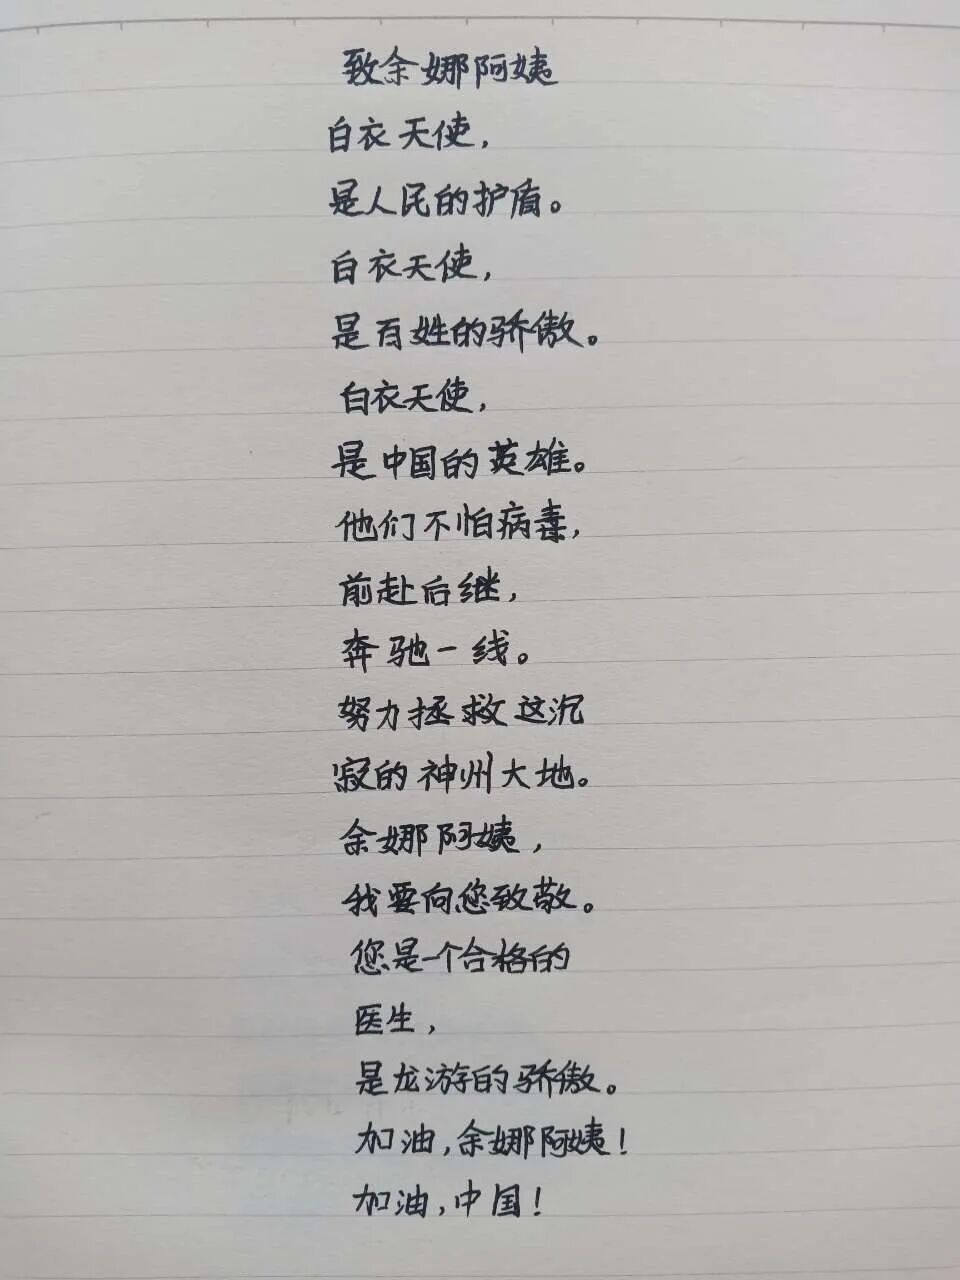 致余娜阿姨
白衣天使,
是人民的护盾。
白衣天使,
是百姓的骄傲。
白衣天使,
是中国的英雄。
他们不怕病毒,
前赴后继,
奔驰一线。
努力拯救这沉
寂的神州大地。
余娜阿姨,
我要向您致敬。
您是一个合格的
医生,
是龙游的骄傲。
加油,余娜阿姨!
加油,中国!